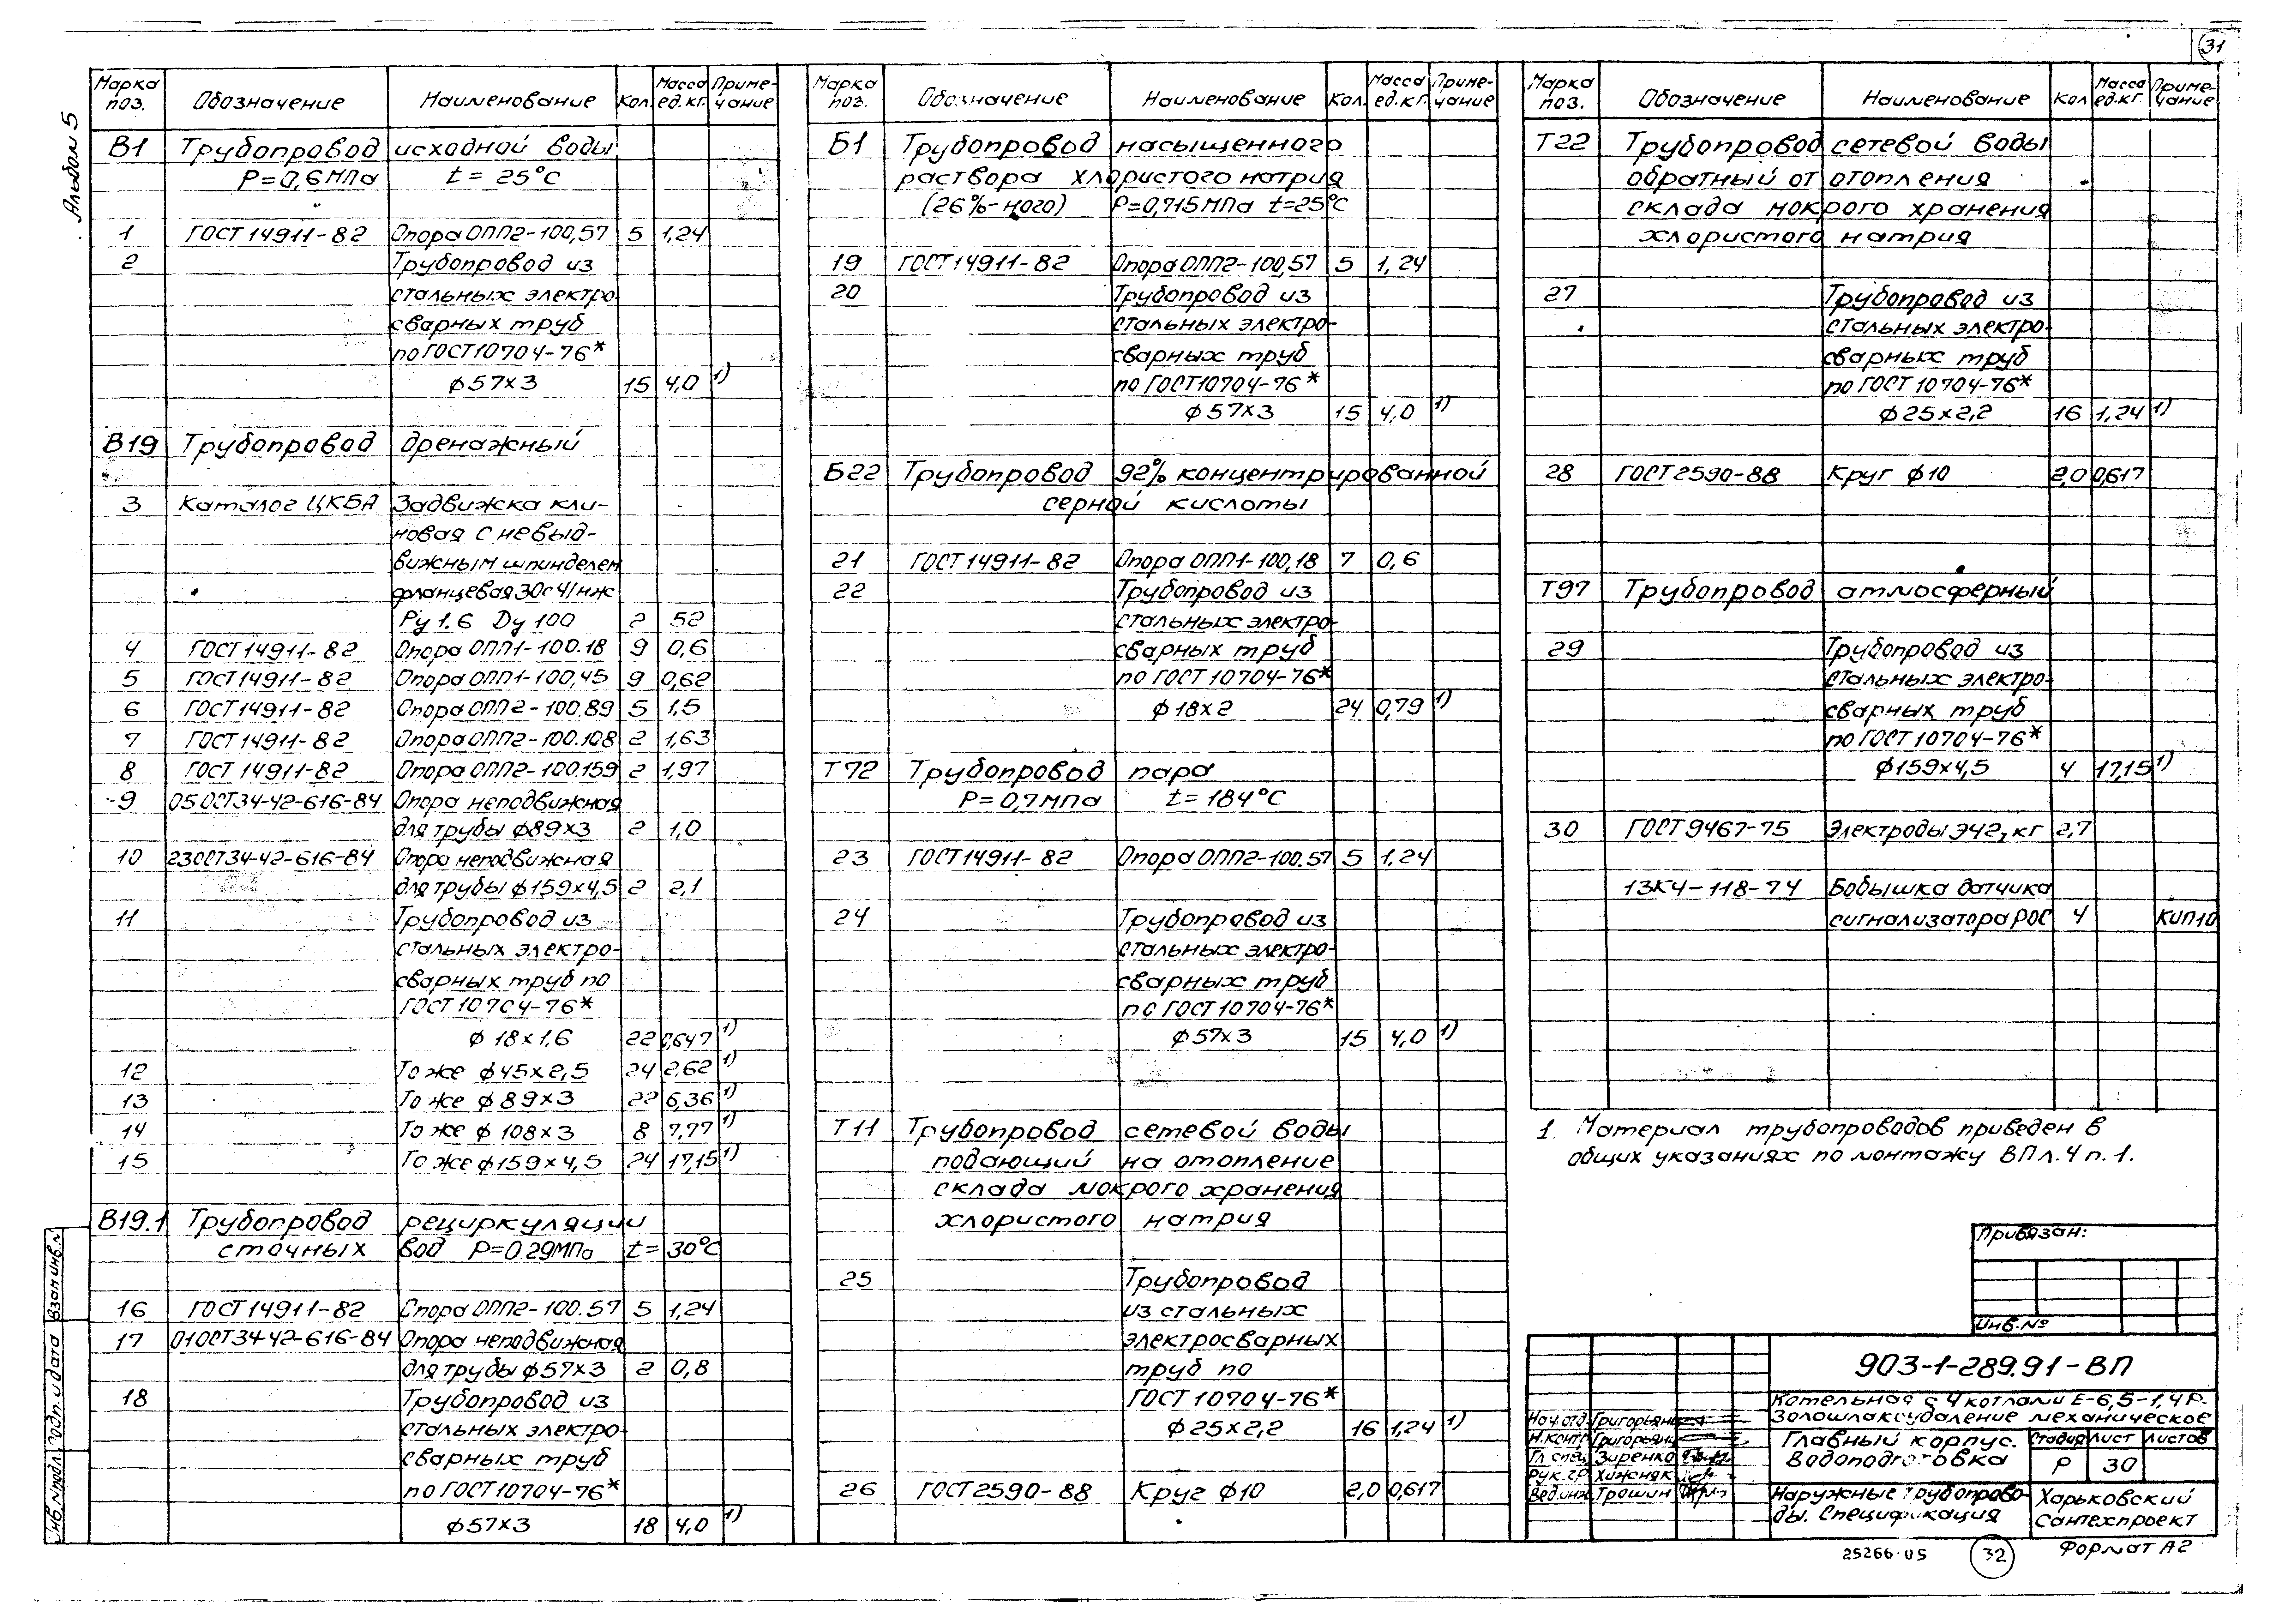 31
Альбом 5
Марка поз. Обозначение Наименование Кол. Масса ед.кг. Приме-чание
В1 Трубопровод исходной воды
Р=0,6МПа t=25°С
1 ГОСТ 14911-82 Опора ОПП2-100,57 5 1,24
2 Трубопровод из
стальных электро-
сварных труб
по ГОСТ10704-76*
ф57х3 15 4,0 1)
В19 Трубопровод дренажный
3 Каталог ЦКБА Задвижка кли-
новая с невыд-
вижным шпинделем
фланцевая 30с41нж
Ру 1.6 Dу 100 2 52
4 ГОСТ 14911-82 Опора ОПП1-100.18 9 0,6
5 ГОСТ 14911-82 Опора ОПП1-100,45 9 0,62
6 ГОСТ 14911-82 Опора ОПП2-100.89 5 1,5
7 ГОСТ 14911-82 Опора ОПП2-100.108 2 1,63
8 ГОСТ 14911-82 Опора ОПП2-100.159 2 1,97
9 05 ОСТ34-42-616-84 Опора неподвижная
для трубы ф89х3 2 1,0
10 23ОСТ34-42-616-84 Опора неподвижная
для трубы ф159х4,5 2 2,1
11 Трубопровод из
стальных электро-
сварных труб по
ГОСТ 10704-76*
ф 18х1,6 22 0,647 1)
12 То же ф45х2,5 24 2,62 1)
13 То же ф89х3 22 6,36 1)
14 То же ф 108х3 8 7,77 1)
15 То же ф159х4,5 24 17,15 1)
В19.1 Трубопровод рециркуляции
сточных вод Р=0.29МПа t=30°С
16 ГОСТ 14911-82 Опора ОПП2-100.57 5 1,24
17 01ОСТ34-42-616-84 Опора неподвижная
для трубы ф57х3 2 0,8
18 Трубопровод из
стальных электро-
сварных труб
по ГОСТ10704-76*
ф57х3 18 4,0 1)
Марка поз. Обозначение Наименование Кол. Масса ед.кг. Приме-чание
Б1 Трубопровод насыщенного
раствора хлористого натрия
(26%-ного) Р=0,715МПа t=25°С
19 ГОСТ 14911-82 Опора ОПП2-100,57 5 1,24
20 Трубопровод из
стальных электро-
сварных труб
по ГОСТ10704-76*
ф57х3 15 4,0 1)
Б22 Трубопровод 92% концентрированной
серной кислоты
21 ГОСТ 14911-82 Опора ОПП1-100,18 7 0,6
22 Трубопровод из
стальных электро-
сварных труб
по ГОСТ 10704-76*
ф 18х2 24 0,79 1)
Т72 Трубопровод пара
Р=0,7МПа t=184°С
23 ГОСТ 14911-82 Опора ОПП2-100.57 5 1,24
24 Трубопровод из
стальных электро-
сварных труб
по ГОСТ 10704-76*
ф57х3 15 4,0 1)
Т11 Трубопровод сетевой воды
подающий на отопление
склада мокрого хранения
хлористого натрия
25 Трубопровод
из стальных
электросварных
труб по
ГОСТ 10704-76*
ф25х2,2 16 1,24 1)
26 ГОСТ2590-88 Круг ф10 2,0 0,617
Марка поз. Обозначение Наименование Кол Масса ед.кг. Приме-чание
Т22 Трубопровод сетевой воды
обратный от отопления
склада мокрого хранения
хлористого натрия
27 Трубопровод из
стальных электро-
сварных труб
по ГОСТ 10704-76*
ф25х2,2 16 1,24 1)
28 ГОСТ2590-88 Круг ф10 2,0 0,617
Т97 Трубопровод атмосферный
29 Трубопровод из
стальных электро-
сварных труб
по ГОСТ 10704-76*
ф159х4,5 4 17,15 1)
30 ГОСТ9467-75 Электроды Э42, кг 2,7
13К4-118-74 Бобышка датчика
сигнализатора РОС 4 КИП10
1. Материал трубопроводов приведен в
общих указаниях по монтажу ВП л.4 п.1.
Привязан:
Инв.№
903-1-289.91-ВП
Котельная с 4 котлами Е-6,5-1,4Р.
Золошлакоудаление механическое
Нач.отд. Григорьянц
Н.контр Григорьянц
Гл.спец. Зиренко
Рук.гр. Хижняк
Вед.инж. Трошин
Главный корпус.
Водоподготовка
Стадия Лист Листов
Р 30
Наружные трубопрово-
ды. Спецификация
Харьковский
Сантехпроект
25266-05 32 Формат А2
Инв.№подл. Подп. и дата Взам инв.№